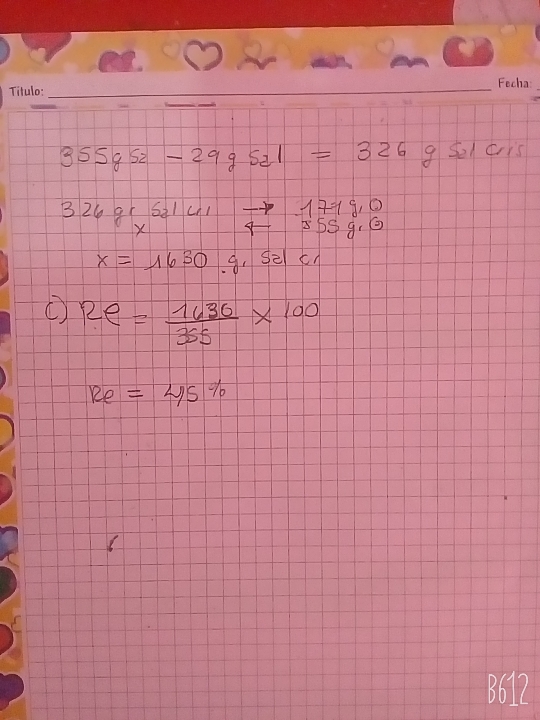 Título:
Fecha:
355g Sz - 29g Szl = 326 g Szl cris
326 gr Szl cri → 171 g. O
x ← 355 g. O
x = 1630 g. Szl cr
C) Re = 1636 / 355 x 100
Re = 4,5 %
B612